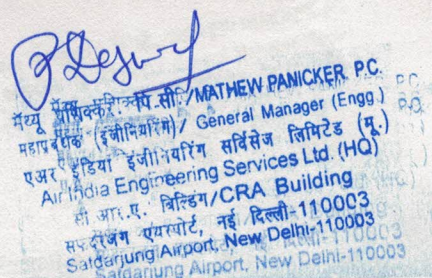 मैथ्यू पणिक्कर. पि.सी./MATHEW PANICKER P.C.
महाप्रबंधक (इंजीनियरिंग)/ General Manager (Engg.)
एअर इंडिया इंजीनियरिंग सर्विसेज लिमिटेड (मु.)
Air India Engineering Services Ltd. (HQ)
सी.आर.ए. बिल्डिंग/CRA Building
सफदरजंग एयरपोर्ट, नई दिल्ली-110003
Safdarjung Airport, New Delhi-110003
Safdarjung Airport, New Delhi-110003